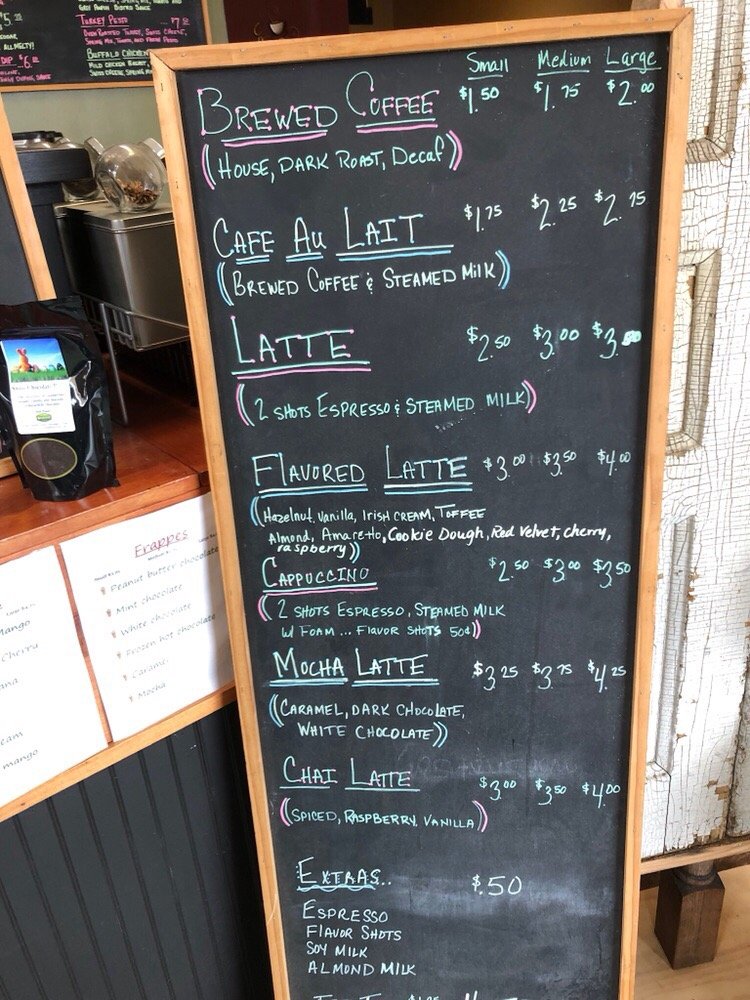 $5.
TURKEY PESTO $7.50
OVEN ROASTED TURKEY, SWISS CHEESE,
SPRING MIX, TOMATO, AND FRESH PESTO
ALL MELTY!
BUFFALO CHICKEN
DIP $6.
Small Medium Large
BREWED COFFEE $1.50 $1.75 $2.00
(HOUSE, DARK ROAST, Decaf)
CAFE AU LAIT $1.75 $2.25 $2.75
(BREWED COFFEE & STEAMED MILK)
LATTE $2.50 $3.00 $3.50
(2 SHOTS ESPRESSO & STEAMED MILK)
FLAVORED LATTE $3.00 $3.50 $4.00
(Hazelnut, Vanilla, IRISH CREAM, TOFFEE
Almond, Amaretto, Cookie Dough, Red Velvet, cherry,
raspberry)
CAPPUCCINO $2.50 $3.00 $3.50
(2 SHOTS ESPRESSO, STEAMED MILK
W/ FOAM ... FLAVOR SHOTS 50¢)
MOCHA LATTE $3.25 $3.75 $4.25
(CARAMEL, DARK CHOCOLATE,
WHITE CHOCOLATE)
CHAI LATTE $3.00 $3.50 $4.00
(SPICED, RASPBERRY, VANILLA)
EXTRAS.. $.50
ESPRESSO
FLAVOR SHOTS
SOY MILK
ALMOND MILK
Frappes
Peanut butter chocolate
Mint chocolate
White chocolate
Frozen hot chocolate
Caramel
Mocha
Mango
Cherry
mango